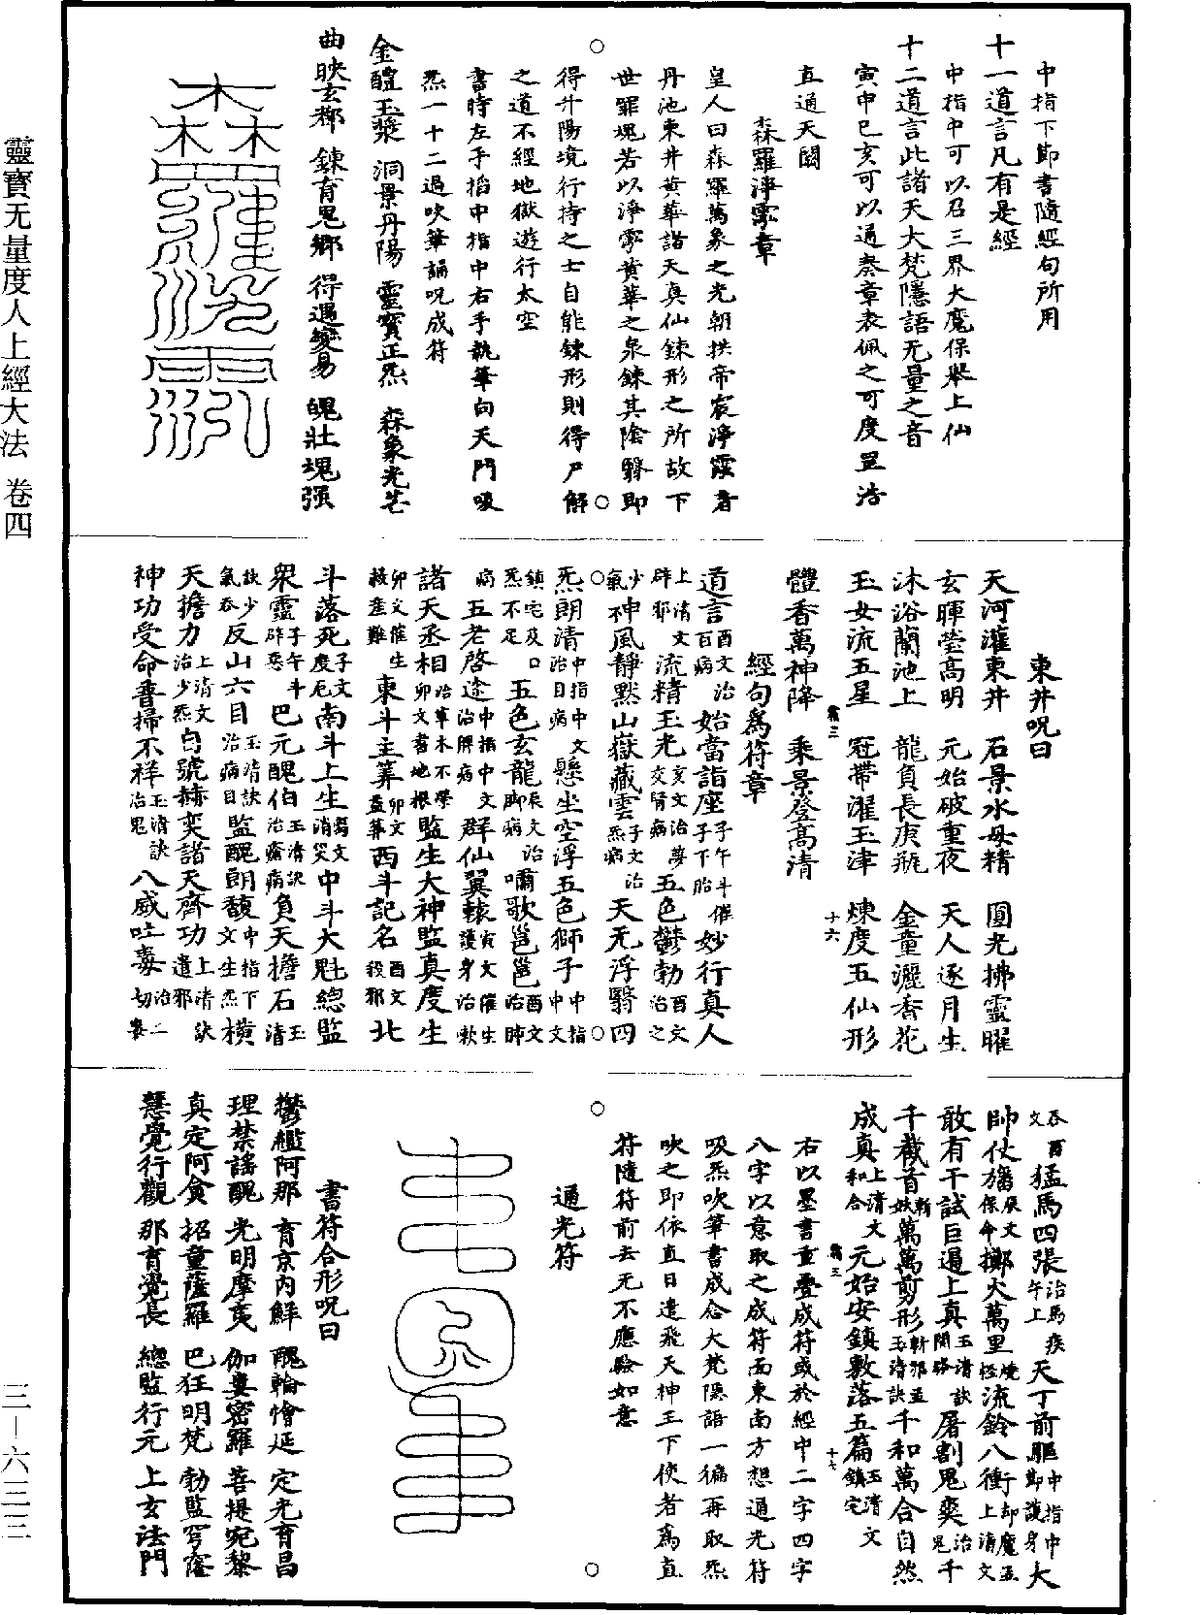 中指下節書隨經句所用
十一道言凡有是經
中指中可以召三界大魔保舉上仙
十二道言此諸天大梵隱語无量之音
寅申巳亥可以通奏章表佩之可度罡浩
直通天闕
森羅淨霐章
皇人曰森羅萬象之光朝拱帝宸淨霐者
丹池東井黃華諸天真仙鍊形之所故下
世罪魂若以淨霐黃華之泉鍊其陰翳即
得升陽境行持之士自能鍊形則得尸解
之道不經地獄遊行太空
書時左手掐中指中右手執筆向天門吸
炁一十二過吹筆誦呪成符
金醴玉漿 洞景丹陽 靈寶正炁 森象光芒
曲映玄鄉 鍊育鬼鄉 得遇變易 魄壯魂强
東井呪曰
天河灌東井 石景水母精 圓光拂靈曜
玄暉瑩高明 元始破重夜 天人逐月生
沐浴蘭池上 龍負長庚瓶 金童灑香花
玉女流五星 冠帶濯玉津 煉度五仙形
體香萬神降 乘景登高清
霜三 十六
經句爲符章
道言酉文治百病始當詣座子午斗催子下胎妙行真人
上清文辟邪流精玉光亥文治夢交腎病五色鬱勃酉文治之
少氣神風靜默山嶽藏雲子文治炁病天无浮翳四
炁朗清中指中文治目病懸坐空浮五色獅子中指中文
鎮宅及口炁不足五色玄龍辰文治脚病嘯歌邕邕酉文治肺
病五老啓途中指中文治脾病群仙翼轅寅文催生護身治嗽
諸天丞相治草木不學卯文書地根監生大神監真度生
卯文催生救産難東斗主筭卯文益筭西斗記名酉文殺邪北
斗落死子文度厄南斗上生獨文消災中斗大魁總監
衆靈子午斗辟惡巴元醜伯玉清訣治瘡病負天擔石玉清
訣少氣吞反山六目玉清訣治病目監醜朗馥中指下文生炁橫
天擔力上清文治少炁自號赫奕諸天齊功上清訣遣邪
神功受命普掃不祥玉清訣治鬼八威吐毒治一切毒
吞酉文猛馬四張治馬疾午上天丁前驅中指中節護身大
帥仗旛辰文保命擲火萬里燒怪流鈴八衝却魔上清文
敢有干試巨遏上真玉清訣開路屠割鬼爽治鬼千
千截首斬妖萬萬剪形斬邪玉清訣千和萬合自然
成真上清文和合元始安鎮敷落五篇玉清文鎮宅
霜三 十七
右以墨書重疊成符或於經中二字四字
八字以意取之成符面東南方想通光符
吸炁吹筆書成念大梵隱語一徧再取炁
吹之即依直日遣飛天神王下使者爲直
符隨符前去无不應驗如意
通光符
書符合形呪曰
鬱艦阿那 育京內鮮 醜輪愴延 定光育昌
理禁謠醜 光明摩夷 伽婁密羅 菩提宛黎
真定阿貪 招童薩羅 巴狂明梵 勃監穹窿
慧覺行觀 那育覺長 總監行元 上玄法門
靈寶无量度人上經大法 卷四
三—六三三